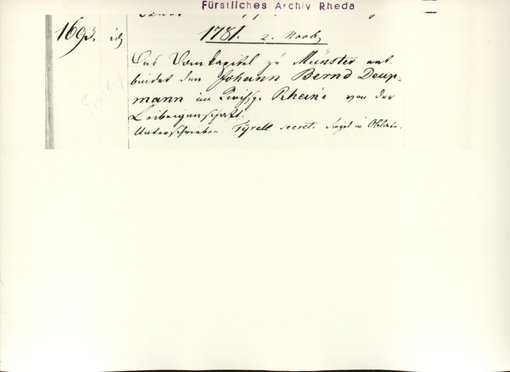 Fürstliches Archiv Rheda
1693. 1781. 2.
Das Domkapitel zu Münster ent-
bindet den Johann Bernd Deup-
mann im Kirchsp. Rheine von der
Leibeigenschaft.
Unterschrieben Tyrell secret. Siegel in Oblate.